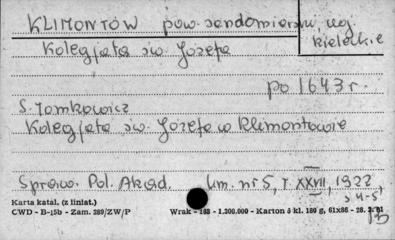 KLIMONTÓW pow. sandomierski, woj.
kieleckie
Kolegjata św. Józefa
po 1643 r.
S. Tomkowicz
Kolegjata św. Józefa w Klimontowie
Spraw. Pol. Akad. Um. nr 5, T. XXVII, 1922,
s 4-5,
Karta katal. (z liniat.)
CWD - B-15b - Zam. 289/ZW/P Wrak - 188 - 1.200.000 - Karton ó kl. 180 g, 61x86 - 28. 3. 51